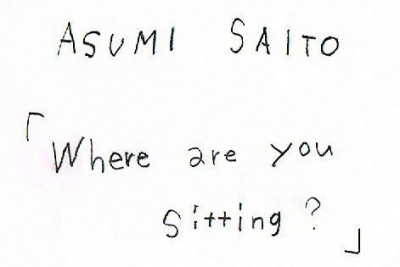 ASUMI SAITO
「Where are you
sitting?」